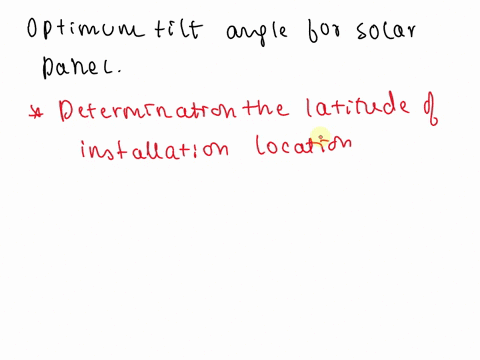 Optimum tilt angle for solar
panel.
* Determination the latitude of
installation location